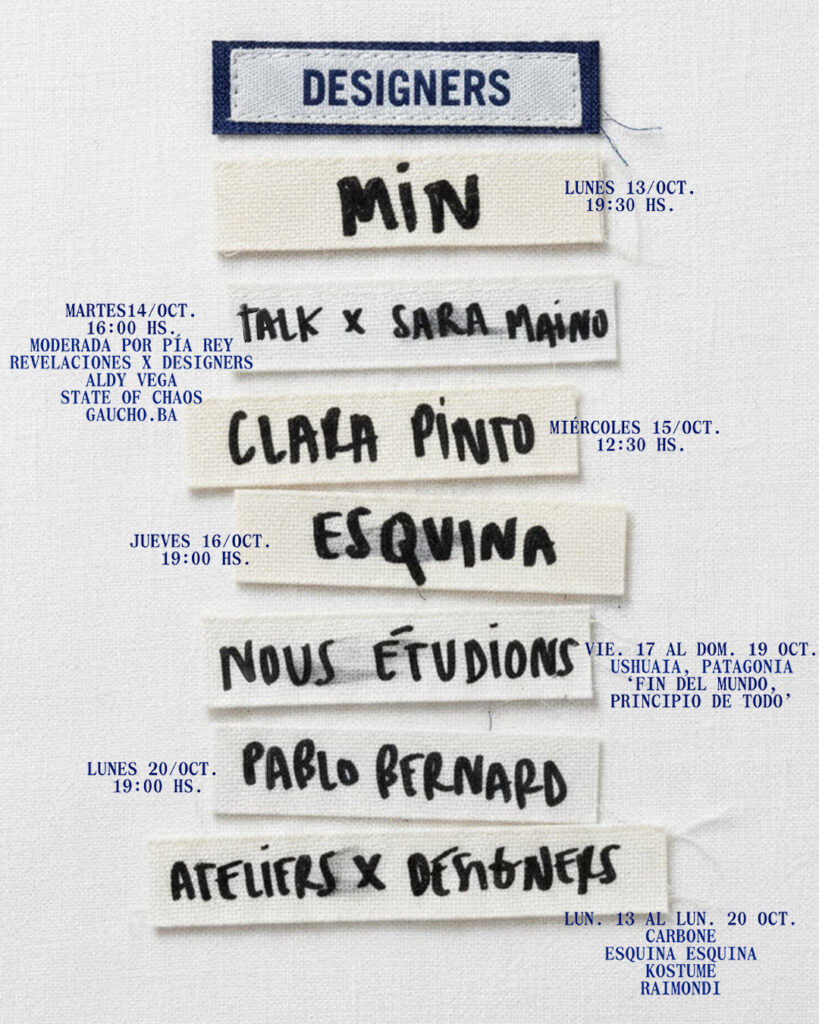 DESIGNERS
MIN
LUNES 13/OCT.
19:30 HS.
TALK X SARA MAINO
MARTES14/OCT.
16:00 HS.
MODERADA POR PÍA REY
REVELACIONES X DESIGNERS
ALDY VEGA
STATE OF CHAOS
GAUCHO.BA
CLARA PINTO
MIÉRCOLES 15/OCT.
12:30 HS.
ESQUINA
JUEVES 16/OCT.
19:00 HS.
NOUS ÉTUDIONS
VIE. 17 AL DOM. 19 OCT.
USHUAIA, PATAGONIA
‘FIN DEL MUNDO,
PRINCIPIO DE TODO’
PABLO BERNARD
LUNES 20/OCT.
19:00 HS.
ATELIERS X DESIGNERS
LUN. 13 AL LUN. 20 OCT.
CARBONE
ESQUINA ESQUINA
KOSTUME
RAIMONDI